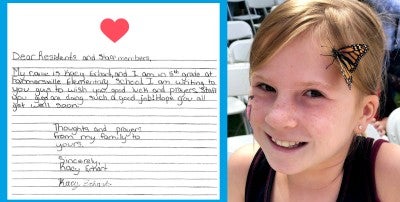 Dear Residents and Staff members,
My name is Kacy and I am in 5th grade at
Elementary School. I am writing to
you guys to wish you good luck and prayers. Staff
you are doing such a good job! Hope you all
get well soon!
Thoughts and prayers
from my family to
yours.
Sincerely,
Kacy
Kacy